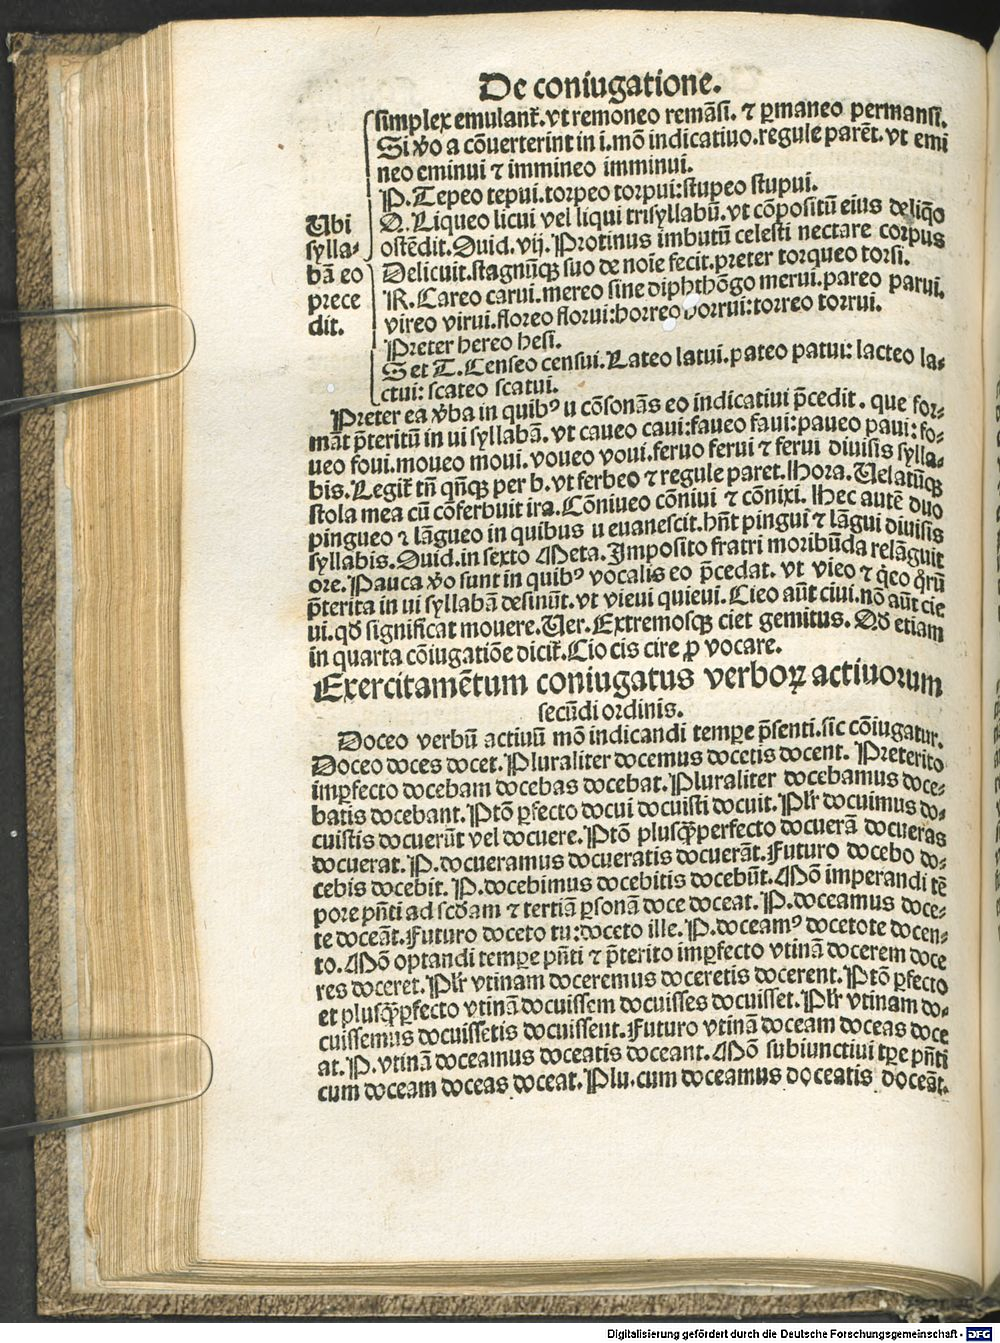 De coniugatione.
simplex emulant᷑. vt remoneo remãsi. ⁊ ꝑmaneo permansi.
Si ṽo a cõuerterint in i. mõ indicatiuo. regule parẽt. vt emi
neo eminui ⁊ immineo imminui.
P. Tepeo tepui. torpeo torpui: stupeo stupui.
Ubi
sylla⸗
bã eo
prece
dit.
Q. Liqueo licui vel liqui trisyllabũ. vt cõpositũ eius deliq̃o
ostẽdit. Ouid. vij. Protinus imbutũ celesti nectare corpus
Delicuit. stagnũqꝫ suo de noĩe fecit. preter torqueo torsi.
R. Careo carui. mereo sine diphthõgo merui. pareo parui.
vireo virui. floreo florui: horreo horrui: torreo torrui.
Preter hereo hesi.
S et T. Censeo censui. Lateo latui. pateo patui: lacteo la⸗
ctui: scateo scatui.
Preter ea ṽba in quibꝰ u cõsonãs eo indicatiui p̃cedit. que for⸗
mãt p̃teritũ in ui syllabã. vt caueo caui: faueo faui: paueo paui: fo⸗
ueo foui. moueo moui. voueo voui. feruo ferui ⁊ ferui diuisis sylla⸗
bis. Legit᷑ tñ qñqꝫ per b. vt ferbeo ⁊ regule paret. Hora. Uelatũqꝫ
stola mea cũ cõferbuit ira. Cõniueo cõniui ⁊ cõnixi. Hec autẽ duo
pingueo ⁊ lãgueo in quibus u euanescit. hñt pingui ⁊ lãgui diuisis
syllabis. Ouid. in sexto Meta. Imposito fratri moribũda relãguit
ore. Pauca ṽo sunt in quibꝰ vocalis eo p̃cedat. vt vieo ⁊ q̇eo q̊rũ
p̃terita in ui syllabã desinũt. vt vieui quieui. Cieo aũt ciui. nõ aũt cie
ui. qđ significat mouere. Uer. Extremosqꝫ ciet gemitus. Qđ etiam
in quarta cõiugatiõe dicit᷑. Cio cis cire ꝓ vocare.
Exercitamẽtum coniugatus verboꝝ actiuorum
secũdi ordinis.
Doceo verbũ actiuũ mõ indicandi temꝑe p̃senti. sic cõiugatur.
Doceo doces docet. Pluraliter docemus docetis docent. Preterito
imꝑfecto docebam docebas docebat. Pluraliter docebamus doce⸗
batis docebant. Ptõ ꝑfecto docui docuisti docuit. Plr̃ docuimus do⸗
cuistis docuerũt vel docuere. Ptõ plusq̃ꝑperfecto docuerã docueras
docuerat. P. docueramus docueratis docuerãt. Futuro docebo do⸗
cebis docebit. P. docebimus docebitis docebũt. Mõ imperandi tẽ
pore pñti ad scđam ⁊ tertiã ꝑsonã doce doceat. P. doceamus doce⸗
te doceãt. Futuro doceto tu: doceto ille. P. doceamꝰ docetote docen⸗
to. Mõ optandi temꝑe pñti ⁊ p̃terito imꝑfecto vtinã docerem doce
res doceret. Plr̃ vtinam doceremus doceretis docerent. Ptõ ꝑfecto
et plusq̃ꝑfecto vtinã docuissem docuisses docuisset. Plr̃ vtinam do⸗
cuissemus docuissetis docuissent. Futuro vtinã doceam doceas doce
at. P. vtinã doceamus doceatis doceant. Mõ subiunctiui tꝑe pñti
cum doceam doceas doceat. Plu. cum doceamus doceatis doceãt.
Digitalisierung gefördert durch die Deutsche Forschungsgemeinschaft - DFG